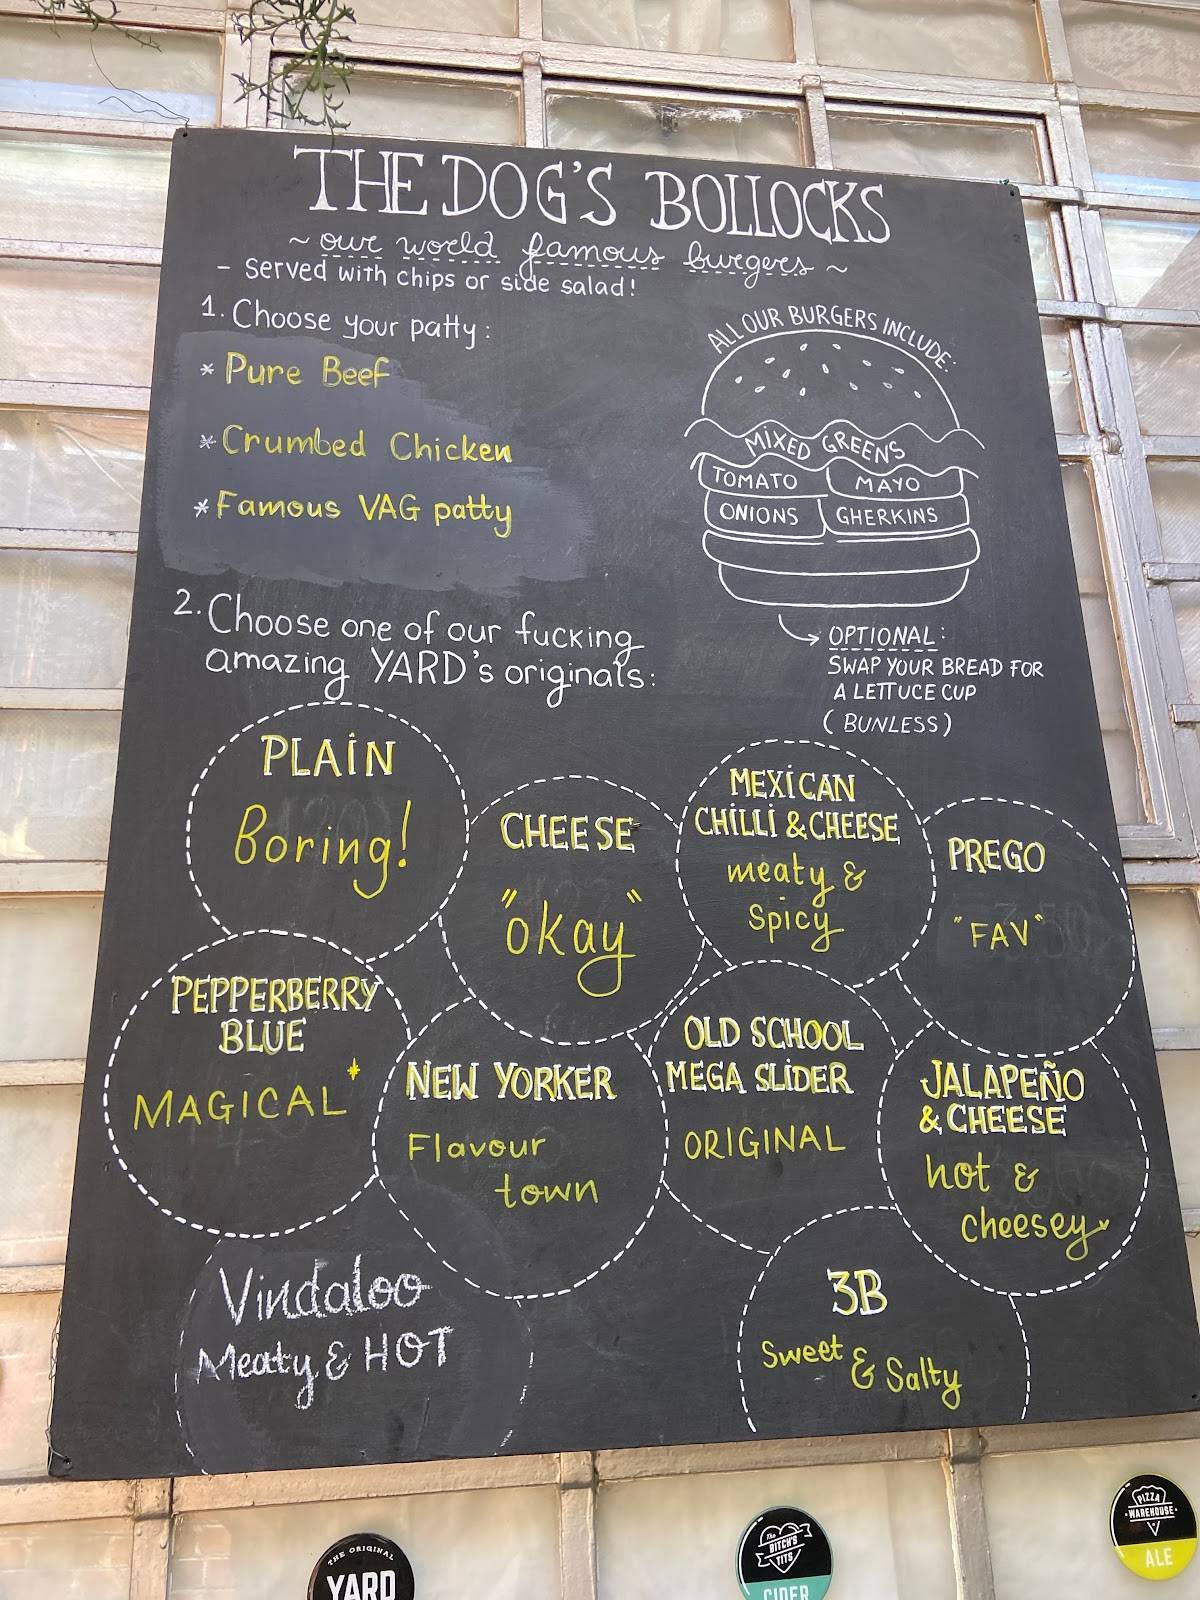 THE DOG'S BOLLOCKS
~ our world famous burgers ~
- Served with chips or side salad!
1. Choose your patty:
* Pure Beef
* Crumbed Chicken
* Famous VAG patty
ALL OUR BURGERS INCLUDE:
MIXED GREENS
TOMATO MAYO
ONIONS GHERKINS
OPTIONAL:
SWAP YOUR BREAD FOR
A LETTUCE CUP
(BUNLESS)
2. Choose one of our fucking
amazing YARD's originals:
PLAIN
Boring!
CHEESE
"okay"
MEXICAN
CHILLI & CHEESE
meaty &
Spicy
PREGO
"FAV"
PEPPERBERRY
BLUE
MAGICAL
NEW YORKER
Flavour
town
OLD SCHOOL
MEGA SLIDER
ORIGINAL
JALAPEÑO
& CHEESE
hot &
cheesey
Vindaloo
Meaty & HOT
3B
Sweet & Salty
THE ORIGINAL
YARD
The
BITCH'S
TITS
CIDER
PIZZA
WAREHOUSE
ALE